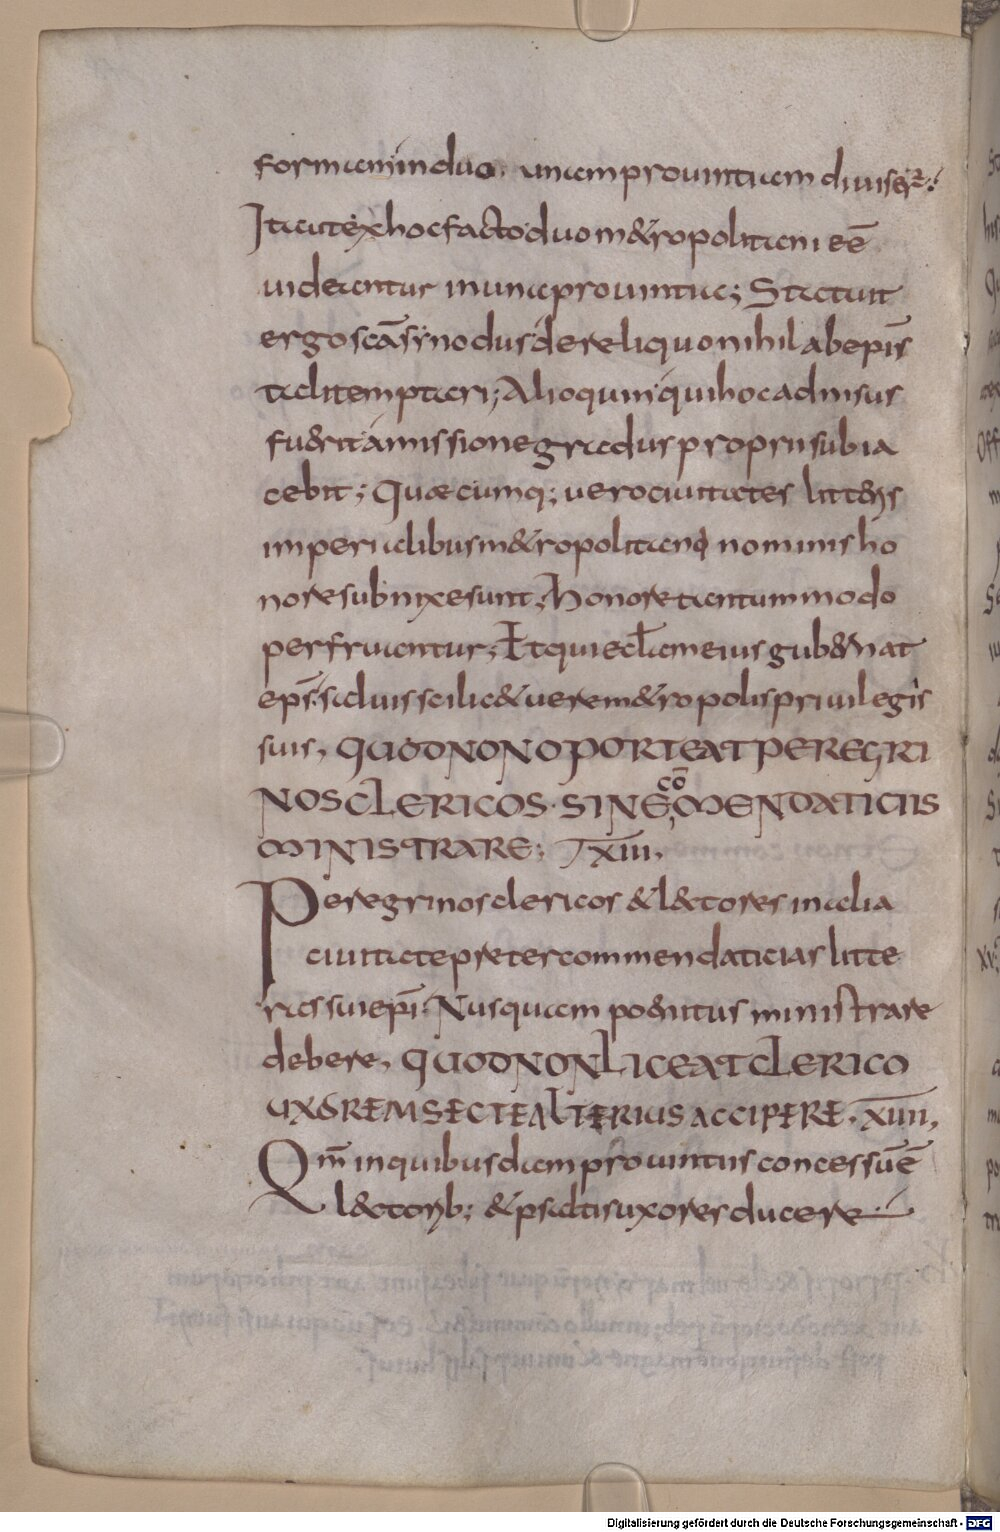 formam in duo. unam prouintiam diuiser̄.
Ita ut ex hoc facto duo m&ropolitani eē
uideantur in una prouintia; Statuit
ergo scā synodus de reliquo nihil ab epīs
tali temptari; Alioquin qui hoc admisus
fu&rit ámissione gradus proprii subia
cebit; Quæcumq; uero ciuitates litt&ris
imperialibus m&ropolitani nominis ho
nore subnixe sunt; honore tantummodo
perfruantur; Et qui eclꝭam eius gub&rnat
ep̄s. saluis scilic& uere m&ropolis priuilegiis
suis, QUOD NON OPORTEAT PEREGRI
NOS CLERICOS·SINE cō MENDATICIIS
MINISTRARE; T XIII.
Peregrinos clericos & l&ctores in alia
ciuitate preter commendaticias litte
ras sui ep̄i. Nusquam po&nitus ministrare
debere, QUOD NON LICEAT CLERICO
UXOREM SECTE ALTERIUS ACCIPERE. XIIII,
Qm̄ in quibusdam prouintiis concessū ē
l&ctorib; & psaltis uxores ducere
Digitalisierung gefördert durch die Deutsche Forschungsgemeinschaft - DFG